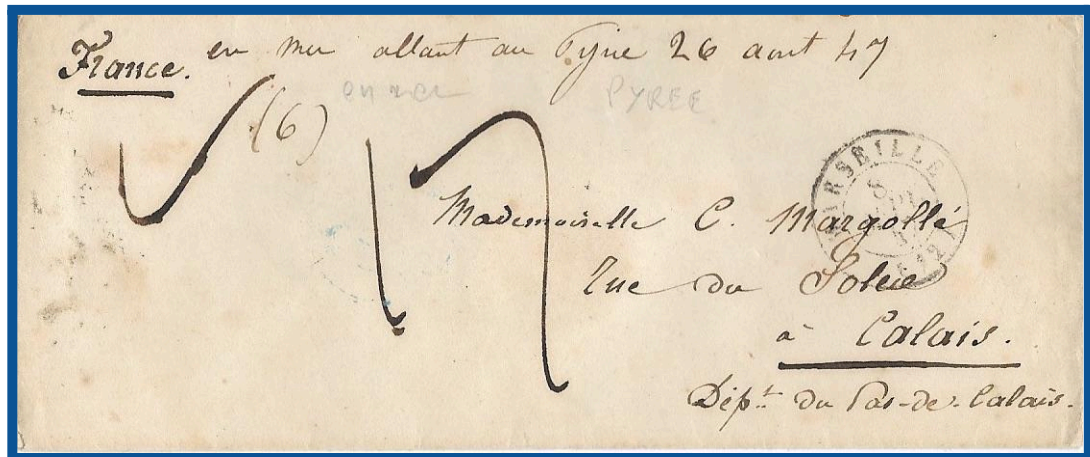 France. en mer allant au Pyrée 26 aout 47
en mer PYREE
(6)
MARSEILLE
8
Mademoiselle C. Margollé
Rue du Soleil
à Calais.
Dépt. du Pas-de-Calais.